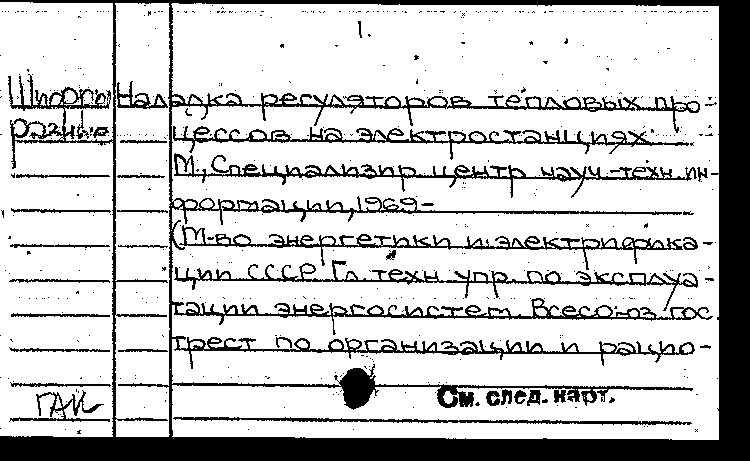 1.
Шифры Наладка регуляторов тепловых про-
разные цессов на электростанциях.
М., Специализир центр науч-техн ин-
формации, 1969-
(М-во энергетики и электрифика-
ции СССР Гл. техн упр. по эксплуа-
тации энергосистем. Всесоюз гос
трест по организации и рацио-
См. след. карт.